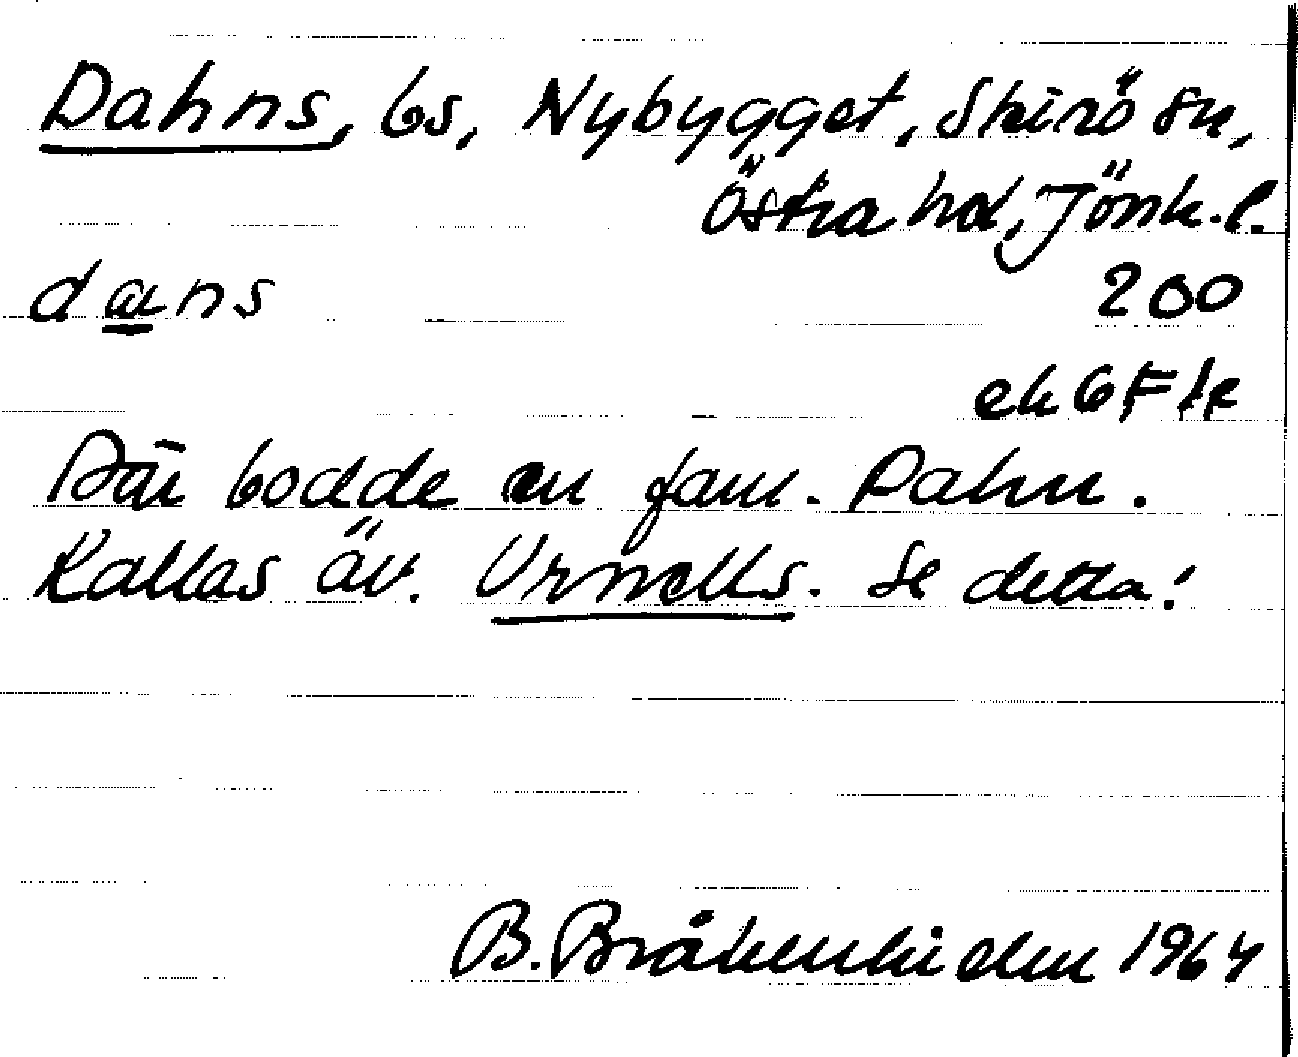 Dahns, bs, Nybygget, Skirö sn,
Östra hd, Jönk.l.
dans 200
ek 6F1f
Där bodde en fam. Dahn.
Kallas äv. Urnells. Se detta!
B. Bråkenhielm 1964